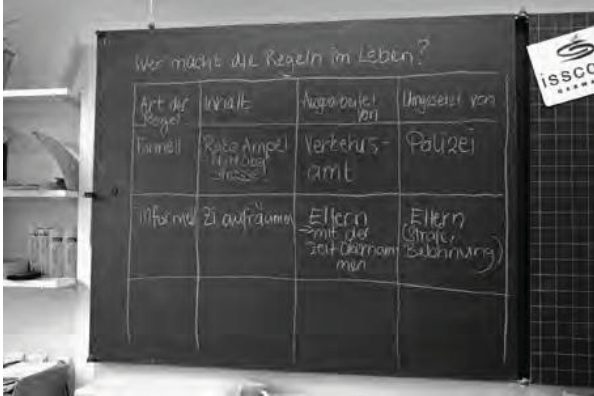 Wer macht die Regeln im Leben?
Art der Regel
Inhalt
Ausgearbeitet von
Umgesetzt von
Formell
Rote Ampel
Verkehrs-
amt
Polizei
Informell
Zi aufräumen
Eltern
→ mit der
Zeit Übernam-
men
Eltern
(Strafe,
Belohnung)
issco